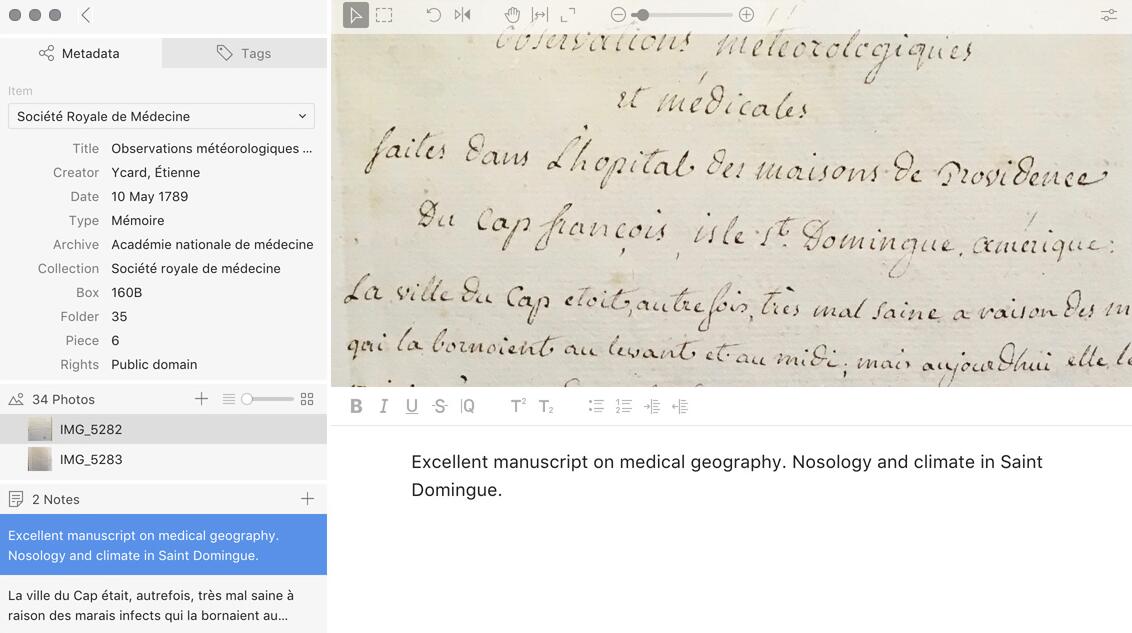 Metadata
Tags
Item
Société Royale de Médecine
Title Observations météorologiques ...
Creator Ycard, Étienne
Date 10 May 1789
Type Mémoire
Archive Académie nationale de médecine
Collection Société royale de médecine
Box 160B
Folder 35
Piece 6
Rights Public domain
34 Photos
IMG_5282
IMG_5283
2 Notes
Excellent manuscript on medical geography.
Nosology and climate in Saint Domingue.
La ville du Cap était, autrefois, très mal saine à
raison des marais infects qui la bornaient au...
Observations meteorologiques
et médicales
faites dans L'hopital des maisons de Providence
Du Cap françois, isle st. Domingue, amérique:
La ville du Cap etoit, autrefois, très mal saine a raison des m
qui la bornoient au levant et au midi; mais aujourdhui elle
B I U S Q T² T₂
Excellent manuscript on medical geography. Nosology and climate in Saint
Domingue.